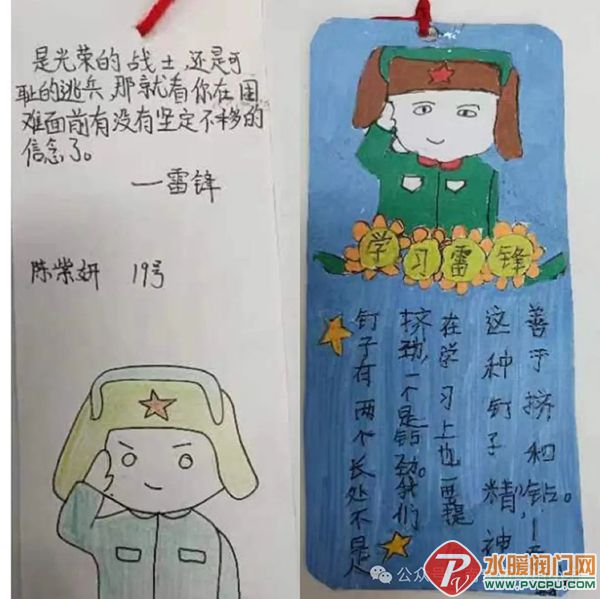 是光荣的战士,还是可
耻的逃兵,那就看你在困
难面前有没有坚定不移的
信念了。
—雷锋
陈 妍 19号
学习雷锋
钉子有两个长处不是
挤劲,一个是钻劲。我们
在学习上也要提
这种钉子精神,
善于挤和钻。
公众
水暖阀门网
WWW.PVCPU.COM